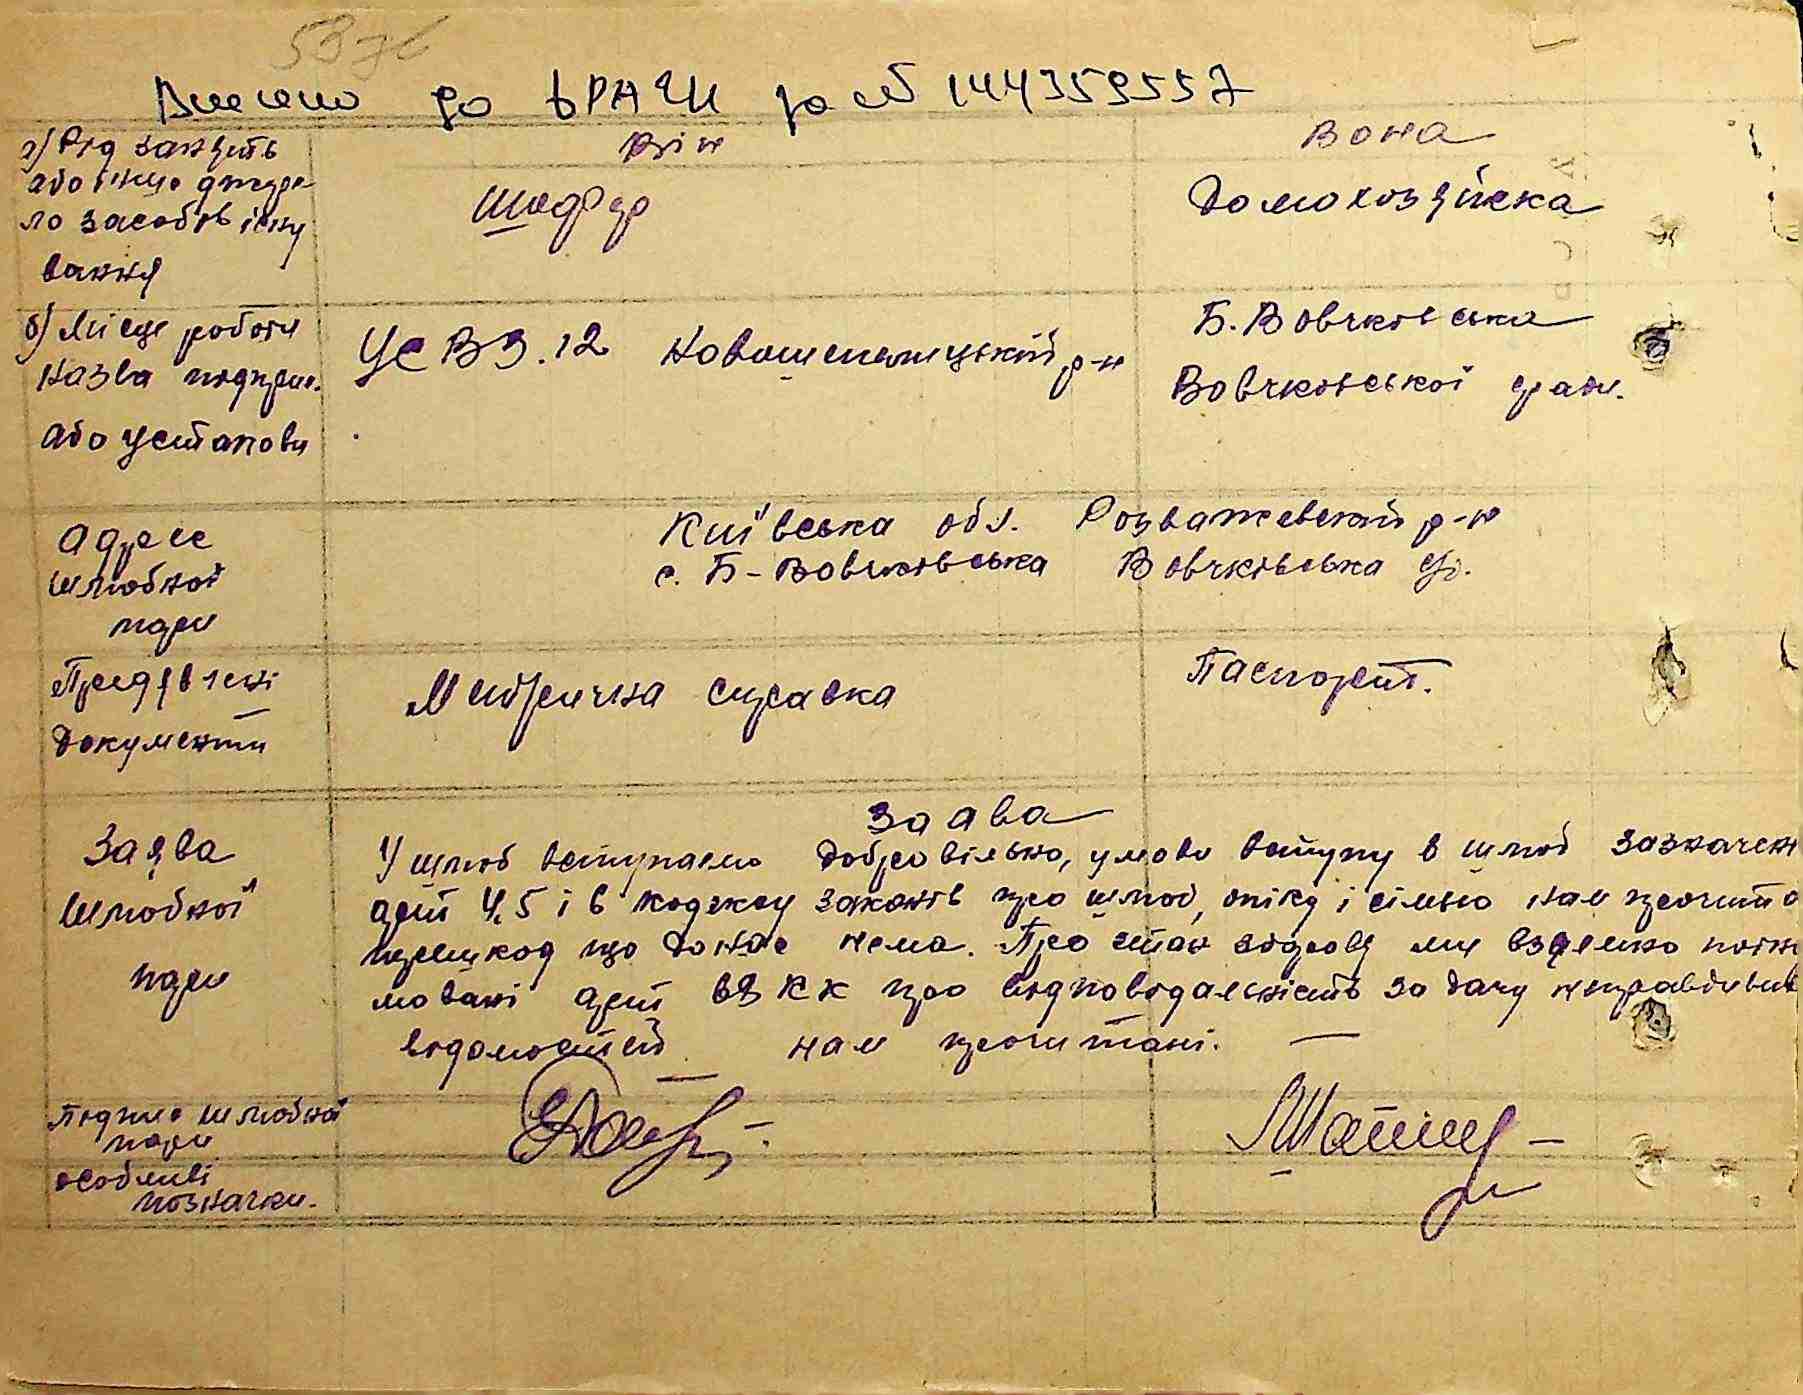 5376
Внесено до ВРАЦИ за № 144359557
Він
Вона
а) Рід занять
або інше джере-
ло засобів існу
вання
Шофер
Домохозяйка
б) Місце роботи
назва підприє.
або установи
УСВЗ.12 Новошепелицький р-н
Б. Вовчківська
Вовчківської ради.
Адреса
шлюбної
пари
Київська обл. Розважевський р-н
с. Б-Вовчківська Вовчківська
Предявлені
документи
Метрична справка
Паспорт.
Заява
Заява
шлюбної
пари
1) шлюб вступаємо добровільно, умови вступу в шлюб зазначен
арт 4, 5 і 6 кодексу законів про шлюб, опіку і сімью нам прочита
перешкод що до нас нема. Про стан здоровя ми взаємно поін
мовані арт 88 КК про відповідальність за дачу неправдивих
відомостей нам прочитані.
Підпис шлюбної
пари
особливі
позначки.